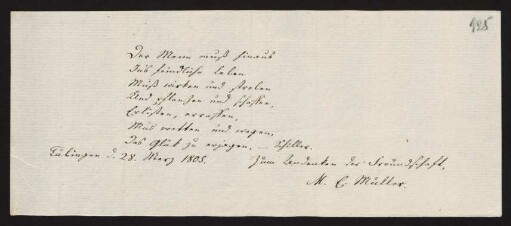 125
Der Mann muß hinaus
Ins feindliche Leben
Muß wirken und streben
Und pflanzen und schaffen,
Erlisten, erraffen,
Mus wetten und wagen,
Das Glük zu erjagen. – Schiller.
Tübingen d. 28. Merz 1805. Zum Andenken der Freundschaft,
M. C. Müller.